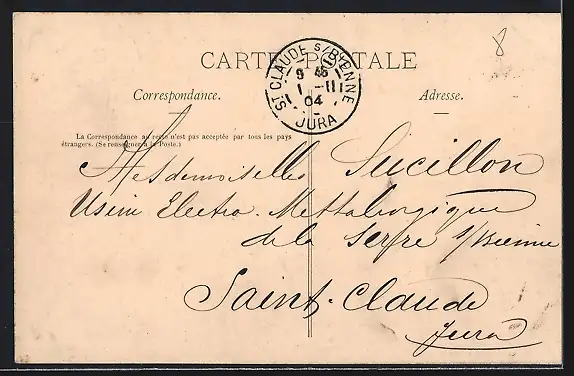 8
CARTE POSTALE
ST CLAUDE S/BIENNE
1 -III
04
JURA
Correspondance.
Adresse.
La Correspondance au recto n'est pas acceptée par tous les pays
étrangers. (Se renseigner à la Poste.)
Mesdemoiselles Sucillon
Usine Electro-Mettalurgique
de la Serre s/Bienne
Saint-Claude
Jura